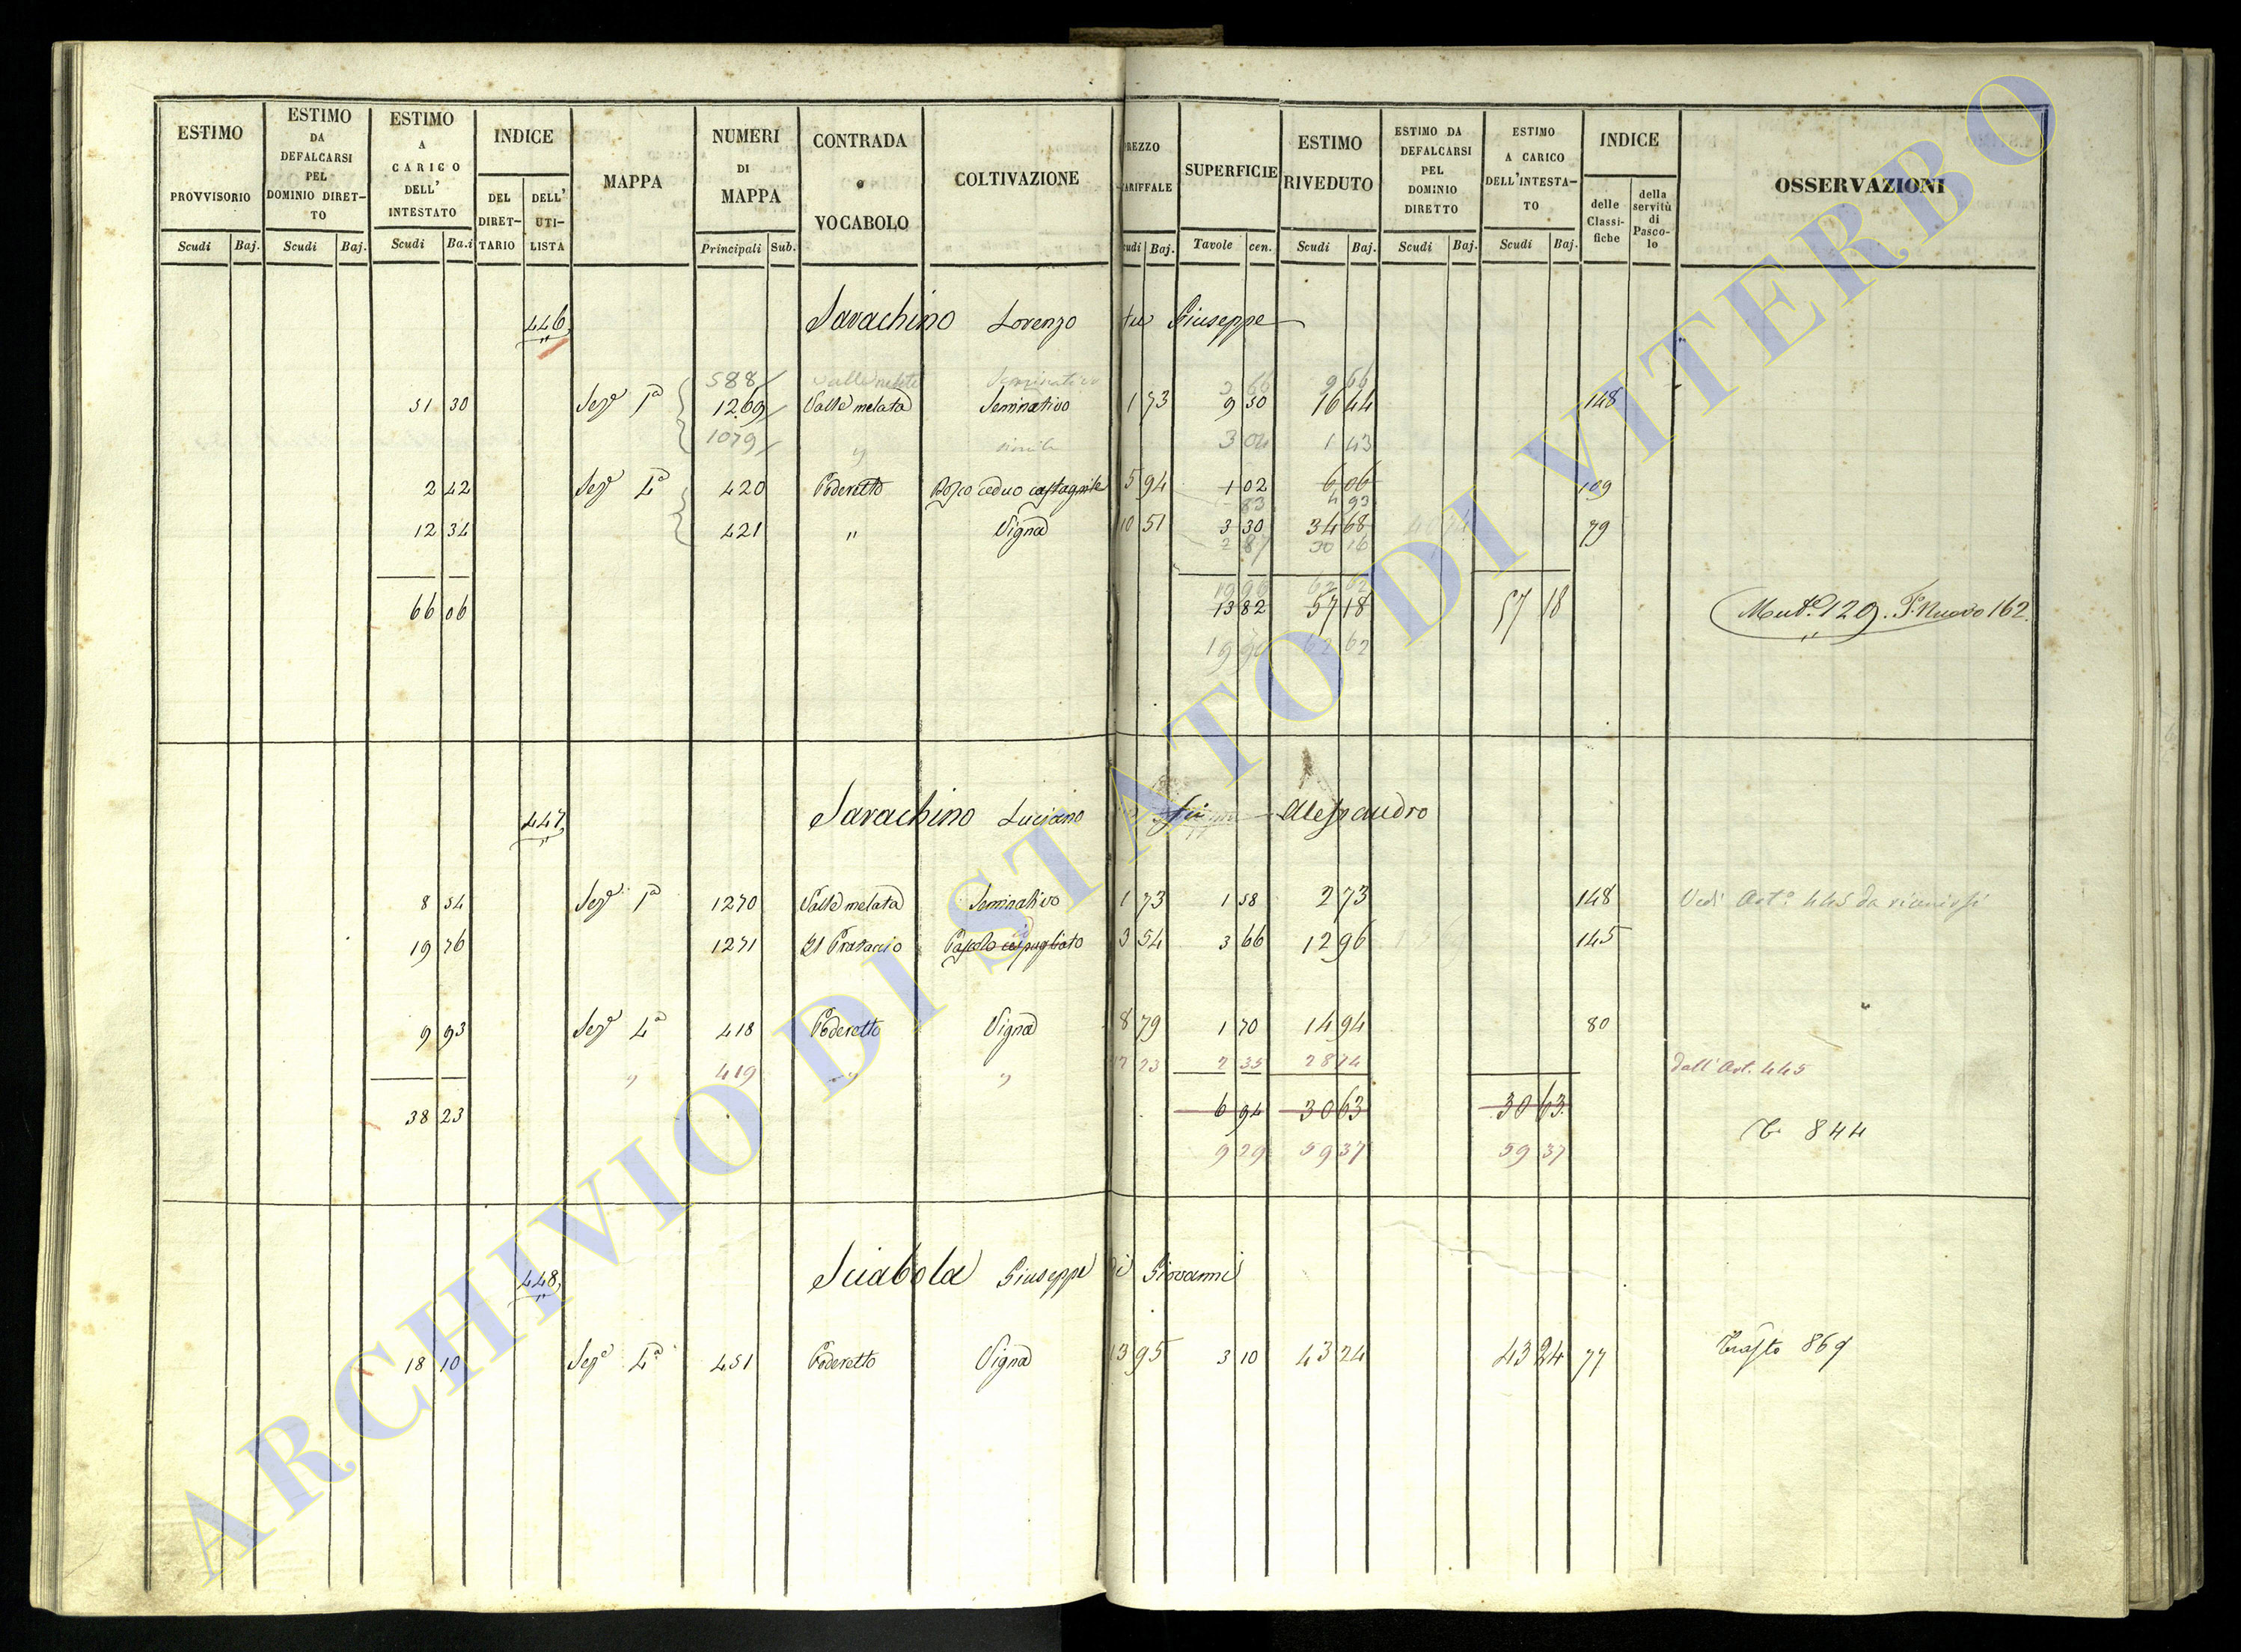 ESTIMO PROVVISORIO Scudi Baj.
ESTIMO DA DEFALCARSI PEL DOMINIO DIRET-TO Scudi Baj.
ESTIMO A CARICO DELL' INTESTATO Scudi Ba.i
INDICE DEL DIRET-TARIO DELL' UTI-LISTA
MAPPA
NUMERI DI MAPPA Principali Sub.
CONTRADA o VOCABOLO
COLTIVAZIONE
REZZO ARIFFALE udi Baj.
SUPERFICIE Tavole cen.
ESTIMO RIVEDUTO Scudi Baj.
ESTIMO DA DEFALCARSI PEL DOMINIO DIRETTO Scudi Baj.
ESTIMO A CARICO DELL'INTESTA-TO Scudi Baj.
INDICE delle Classi-fiche della servitù di Pasco-lo
OSSERVAZIONI
446 Savachino Lorenzo fu Giuseppe
588 Valle melata Seminativo 3 66 9 66
51 30 Sezᵉ 1ª 1269 Valle melata Seminativo 1 73 9 50 16 44 148
1079 " simile 3 04 1 43
2 42 Sezᵉ 4ª 420 Poderetto Bosco ceduo castagnile 5 94 1 02 6 06 109
83 4 93
12 34 421 " Vigna 10 51 3 30 34 68 79
2 87 30 16
19 90 62 62
66 06 13 82 57 18 57 18 Mutª 129. F. Nuovo 162.
19 90 62 62
447 Savachino Luciano fu Alessandro
8 54 Sezᵉ 1ª 1270 Valle melata Seminativo 1 73 1 58 2 73 148 Vedi Artº 445 da riunirsi
19 76 1271 Il Prataccio Pascolo cespugliato 3 54 3 66 12 96 145
9 93 Sezᵉ 4ª 418 Poderetto Vigna 8 79 1 70 14 94 80
" 419 " " 12 23 2 35 28 74 Dall' Art. 445
38 23 6 94 30 63 30 63
T. 844
9 29 59 37 59 37
448 Sciabola Giuseppe di Giovanni
18 10 Sezᵉ 4ª 451 Poderetto Vigna 13 95 3 10 43 24 43 24 77 Trasto 869
ARCHIVIO DI STATO DI VITERBO